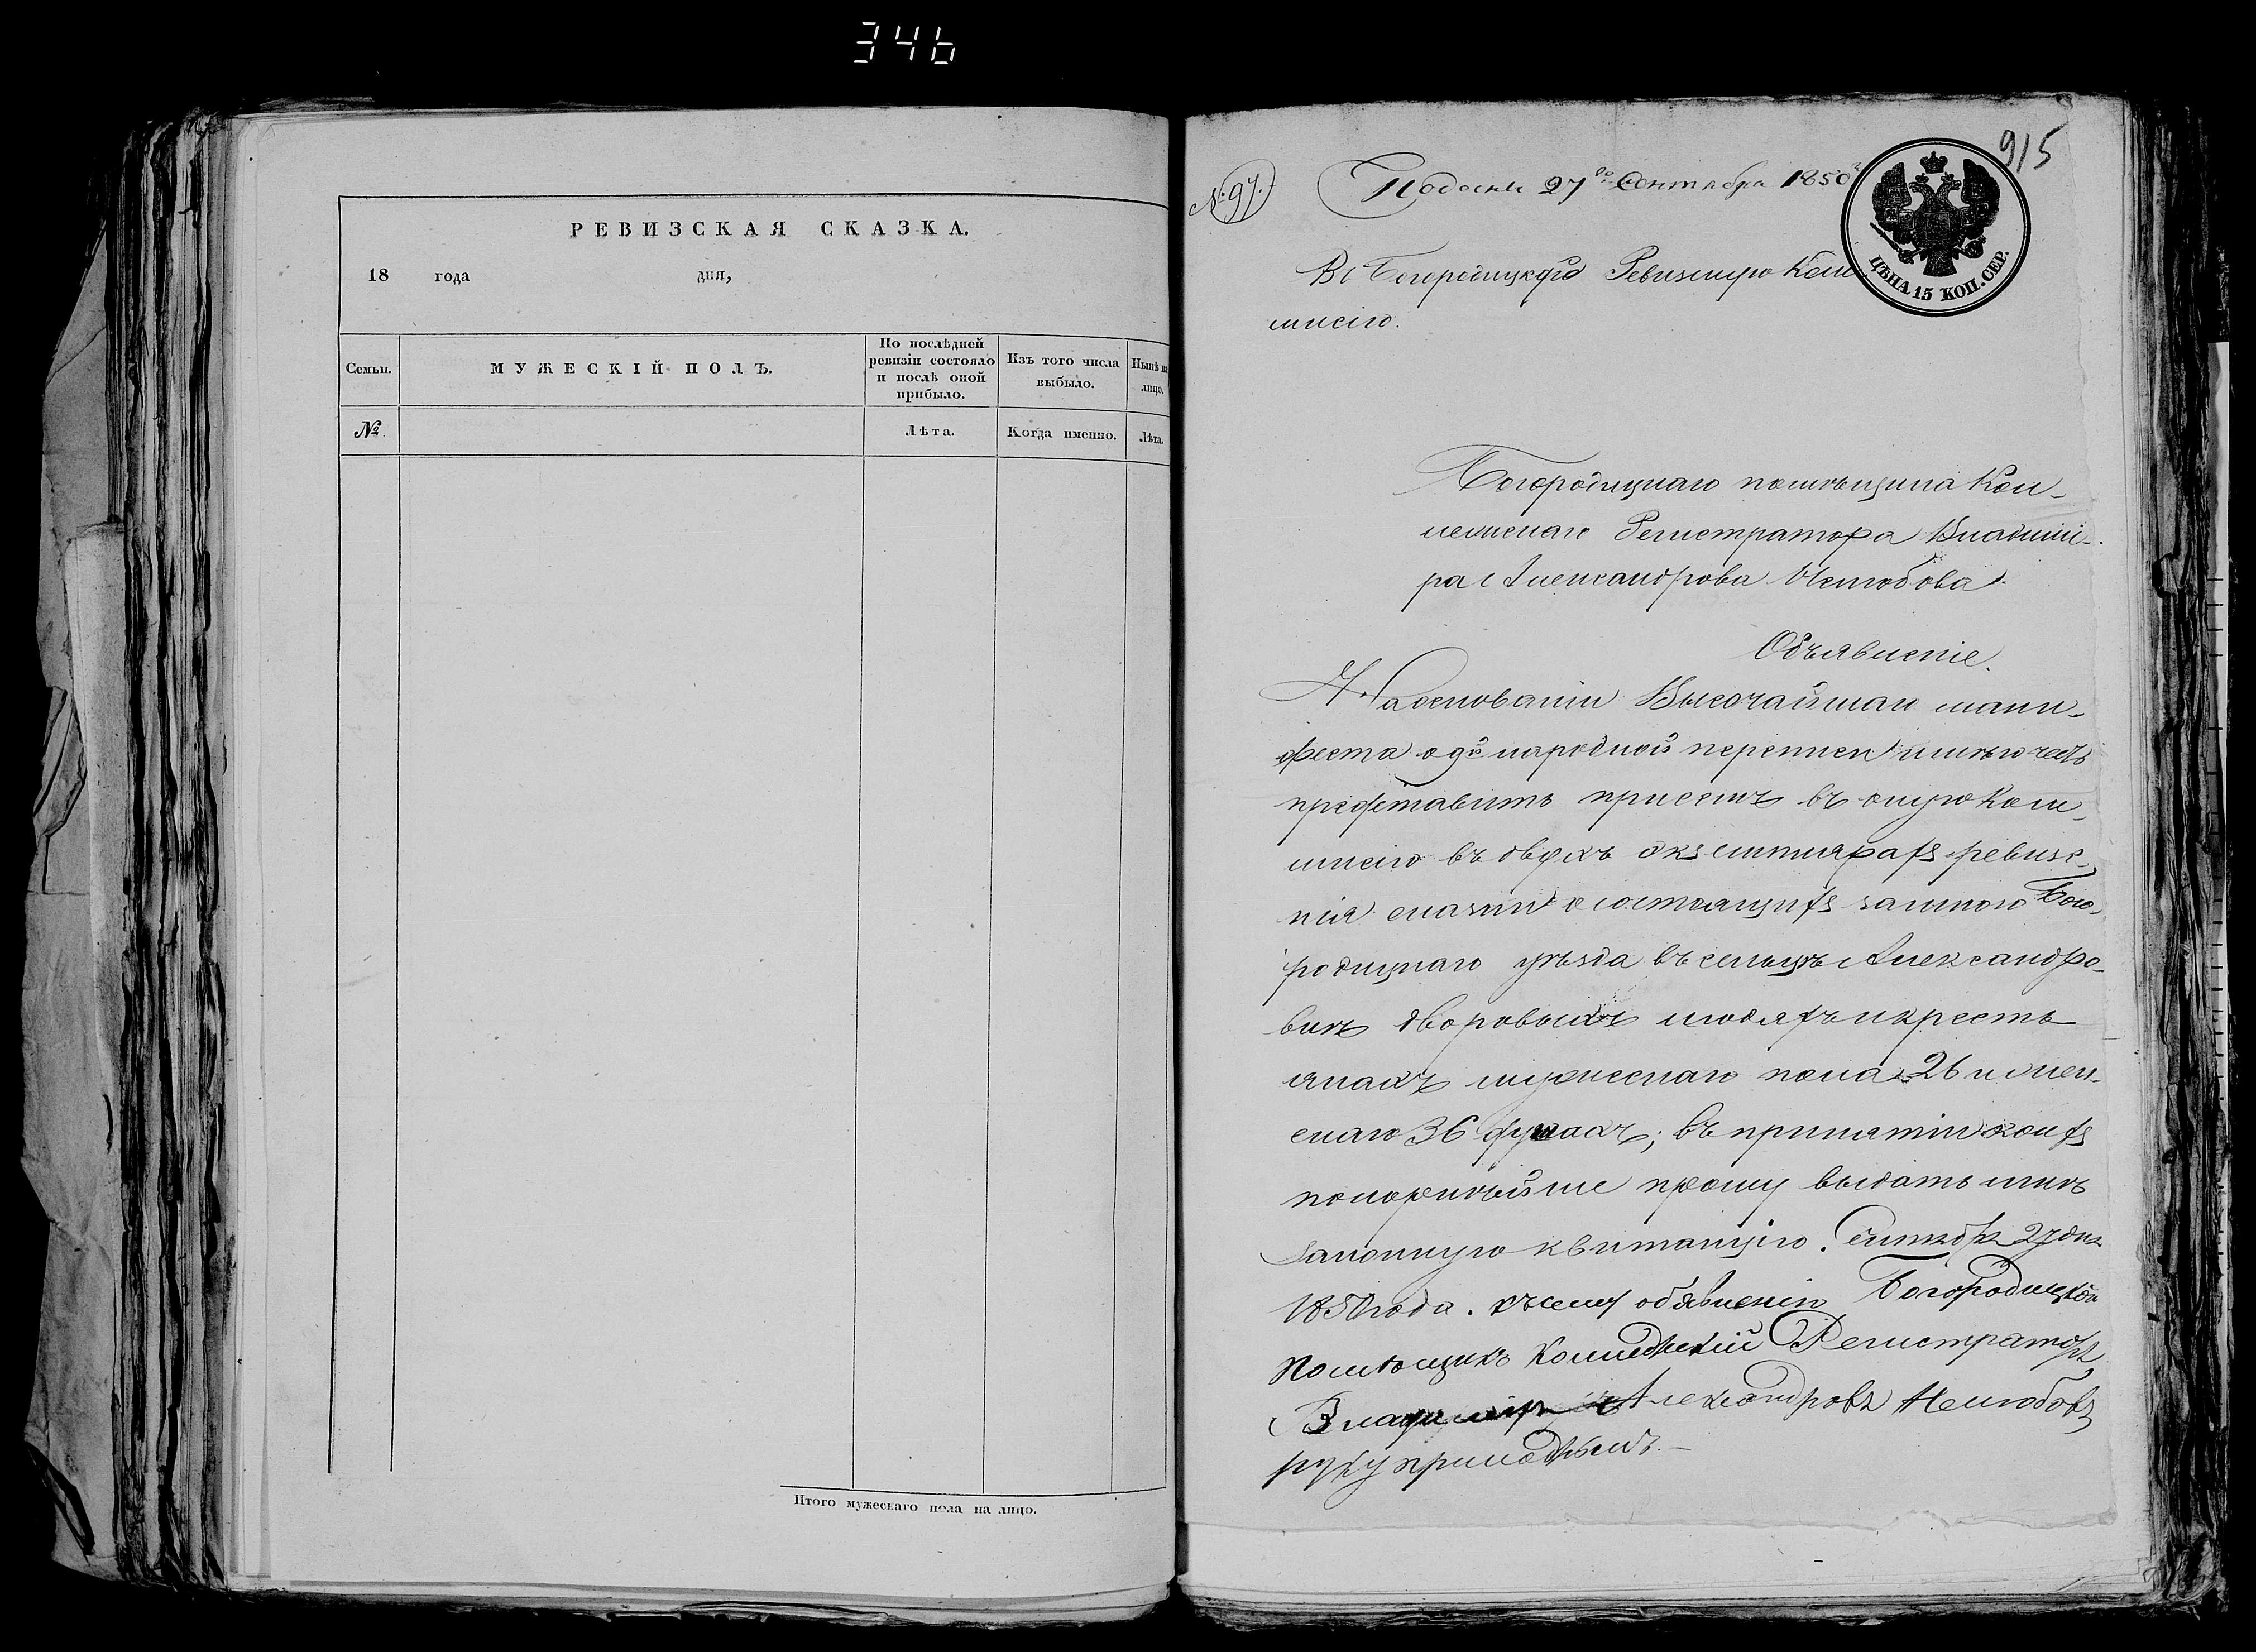 346
РЕВИЗСКАЯ СКАЗКА.
18 года дня,
Семьи.
МУЖЕСКІЙ ПОЛЪ.
По послѣдней
ревизіи состояло
и послѣ оной
прибыло.
Изъ того числа
выбыло.
Нынѣ на
лицо.
№
Лѣта.
Когда именно.
Лѣта.
Итого мужескаго пола на лицо.
915
№ 97.
Подано 27го Сентября 1850
ЦѢНА 15 КОП. СЕР.
Въ Богородицкую Ревизскую Ком
мисію.
Богородицкаго помѣщика Кол-
лежскаго Регистратора Владимі-
ра Александрова Нелюбова
Объявленіе.
На основаніи Высочайшаго мани-
феста о 9й народной переписи имѣю честь
представить при семъ въ оную Ком-
мисію въ двухъ экземплярахъ ревизс-
кія сказки о состоящихъ за мною Бого-
родицкаго уѣзда въ сельцѣ Александро-
вкѣ дворовыхъ людяхъ и кресть
янахъ мужескаго пола 26 и жен-
скаго 36 душахъ; въ принятіи коихъ
покорнѣйше прошу выдать мнѣ
законную квитанцію. Сентября 27 дня
1850 года. къ сему объявленію Богородицкой
Помѣщикъ Коллежскій Регистраторъ
Владиміръ Александровъ Нелюбовъ
руку приложилъ.